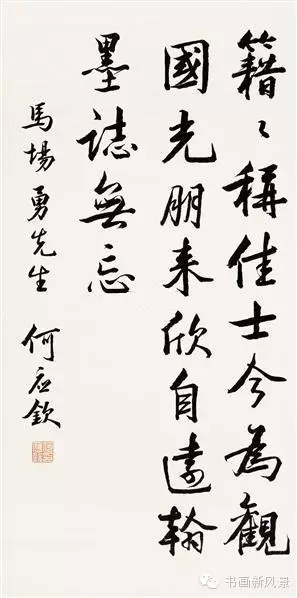 籍〻稱佳士今為觀
國光朋来欣自遠翰
墨誌無忘
馬場勇先生 何应欽
书画新风景